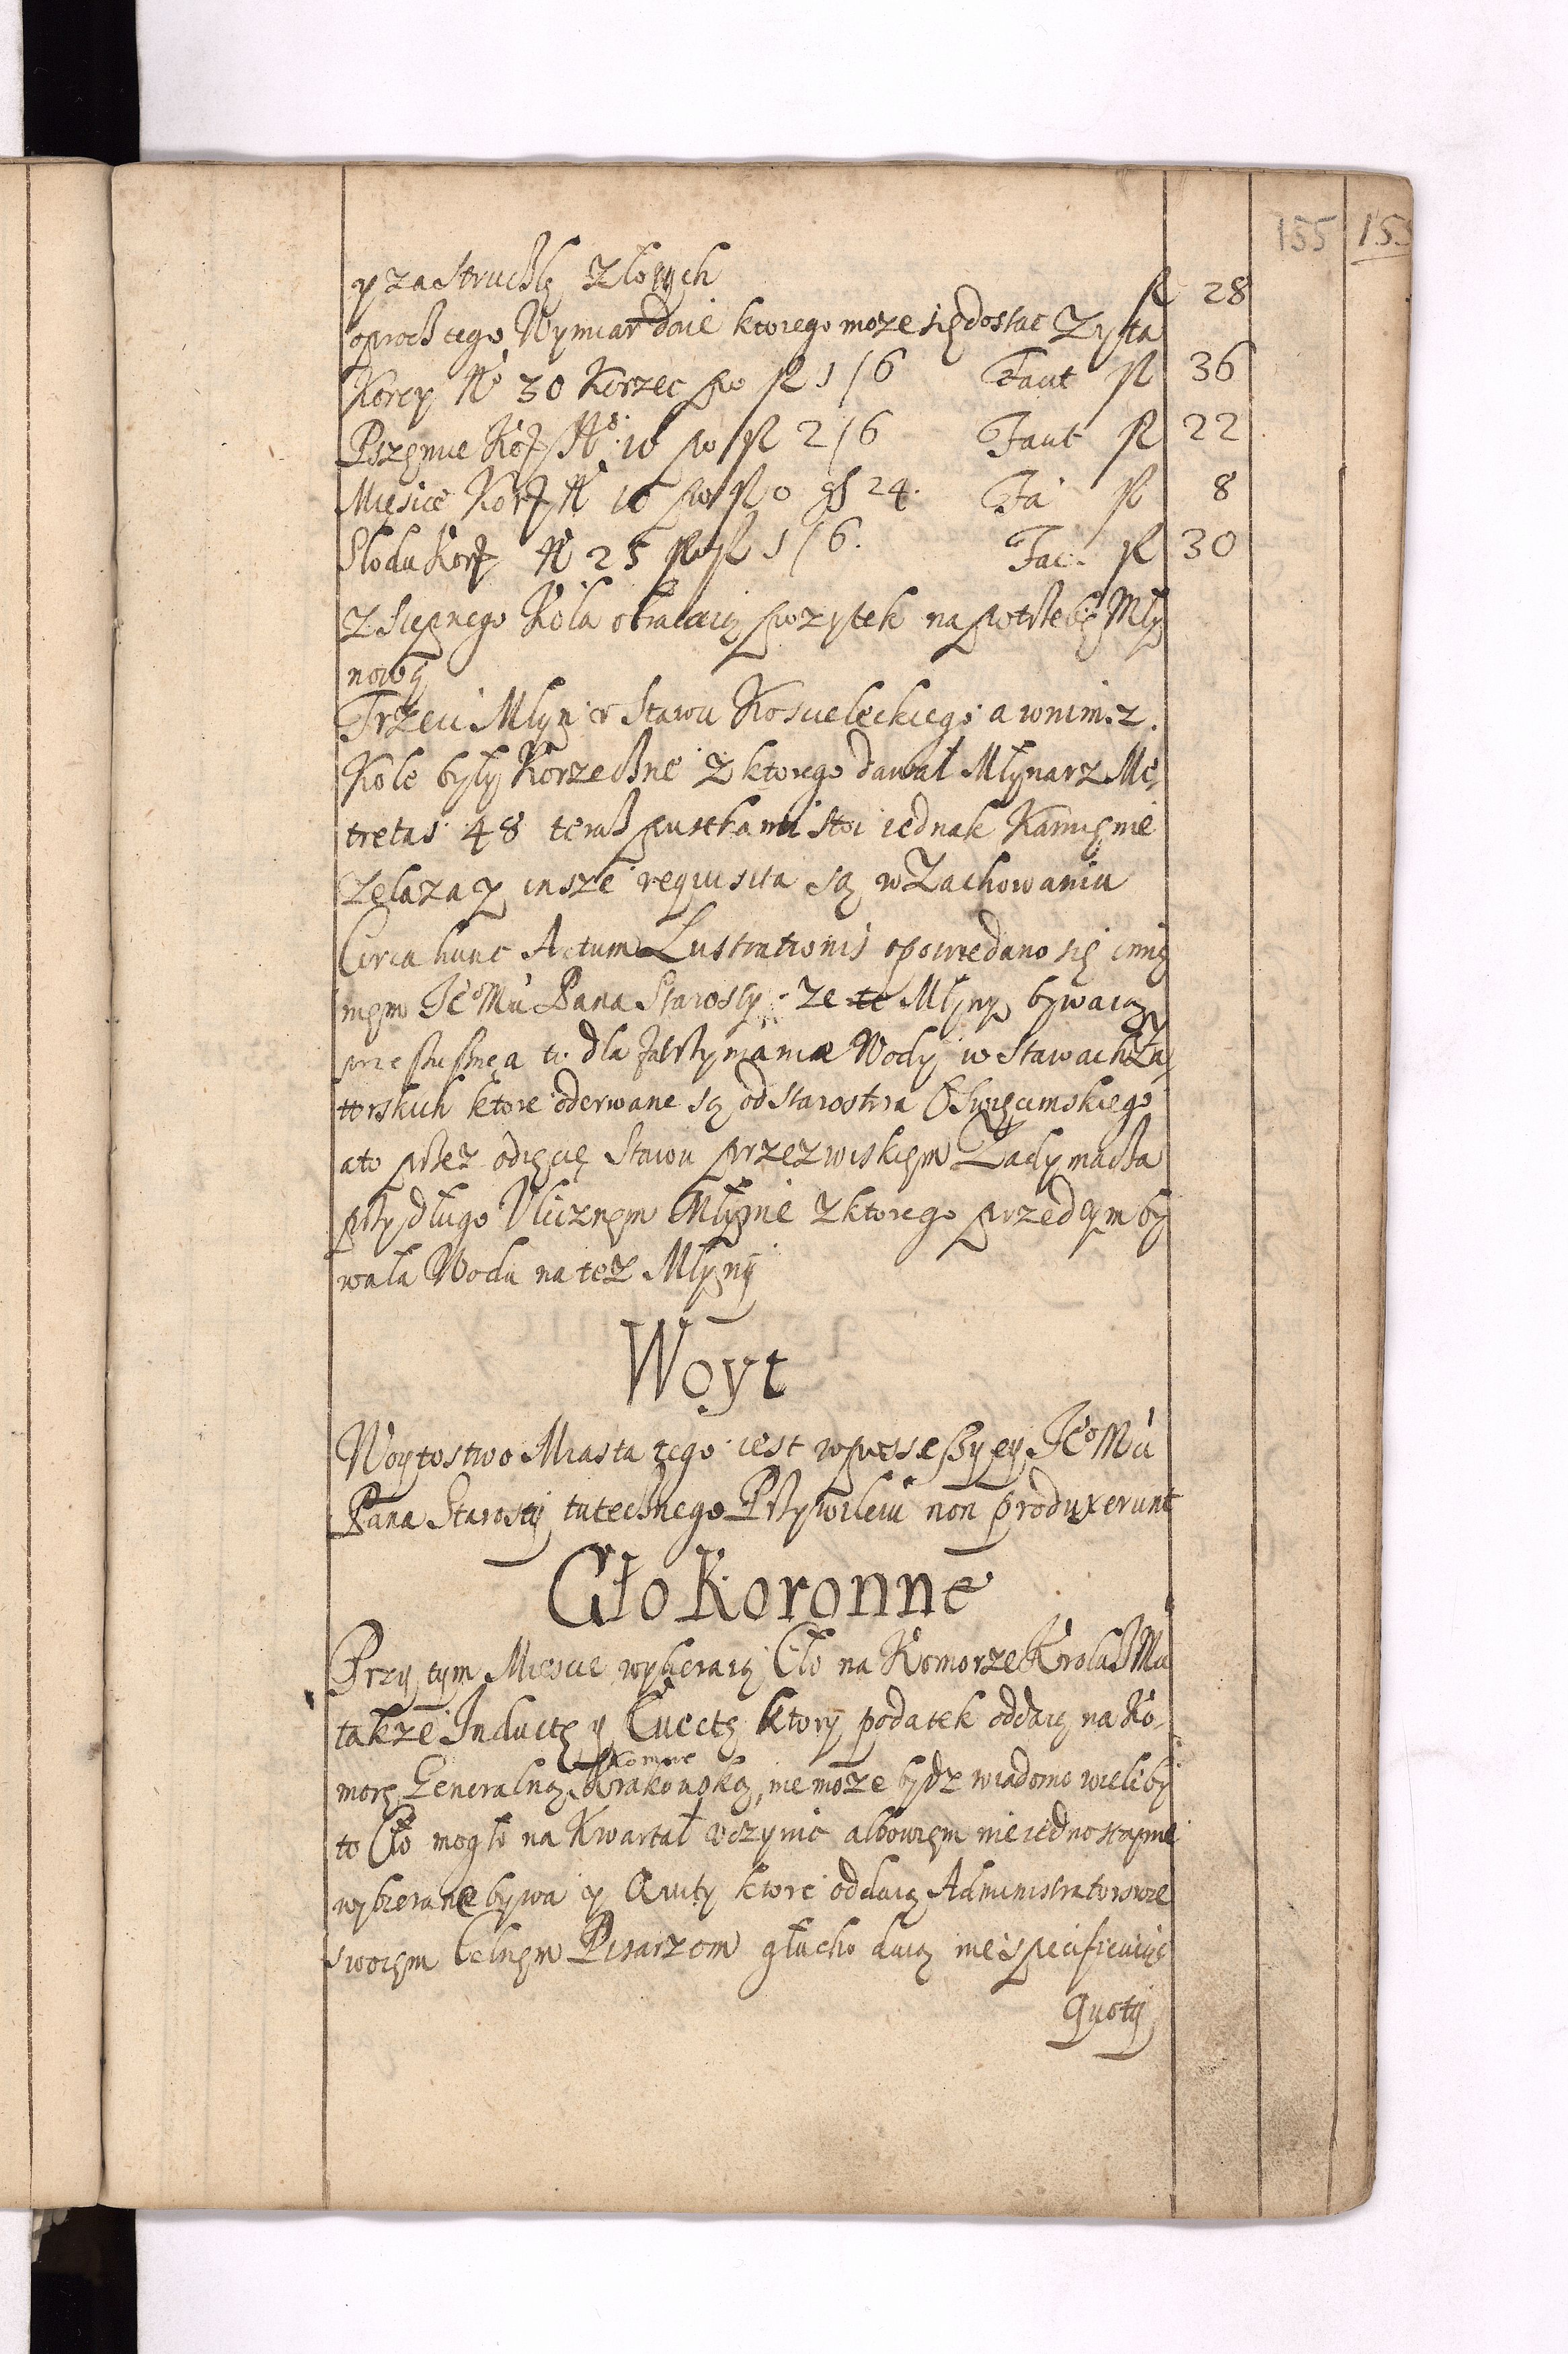 155 155
y za Struclą Złotych fl 28
oprocz tego Wymiar daie ktorego może się dostac Zyta
Korcy No 30 Korzec po fl 1/6 Faut fl 36
Pszęnice Korz No 10 po fl 2/6 Faut fl 22
Mięsice Korz N 10 po fl 0 gs 24. Fa fl 8
Słodu Korz N 25 po fl 1/6. Fac. fl 30
z Stępnego Koła obracaią pozytek na potrzebę Mły
nową
Trzeci Młyn v Stawu Koscieleckiego a w nim 2.
Kole były Korzeczne z ktorego dawał Młynarz Me
tretas 48 teraz pustkami stoi iednak Kamięnie
Zelaza y insze requisita są w Zachowaniu
Circa hunc Actum Lustrationis opowiedano się imię
nięm Ieo Mci Pana Starosty ze te Młyny bywaią
a to dla zatrzymania Wody w Stawach Za
torskich ktore oderwane są od Starostwa Oswięcimskiego
a to przez odięcię Stawu przezwiskięm Zadymacza
przy długo Vlicznęm Młynie z ktorego przed tym by
wała Woda na też Młyny
Woyt
Woytostwo Miasta tego iest w possessyey Ieo Mci
Pana Starosty tutecznego Przywileiu non produxerunt
Cło Koronne
Przy tym Miescie wybieraią Cło na Komorze Krola J Mci
także Inductę y Evectę ktory podatek oddaią na Ko-
morę Generalną Krakowską, nie może bydz wiadomo wieliby
to Cło mogło na Kwartał vczynic albowięm nie iednostaynie
wybierane bywa y Qvity ktore oddaią Administratorowie
swoięm Celnęm Pisarzom głucho daią nie specificuiąc
Quoty